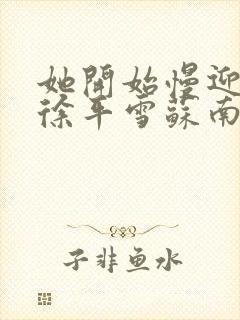 她開始慢迎
徐平雪蘇南
子非鱼水